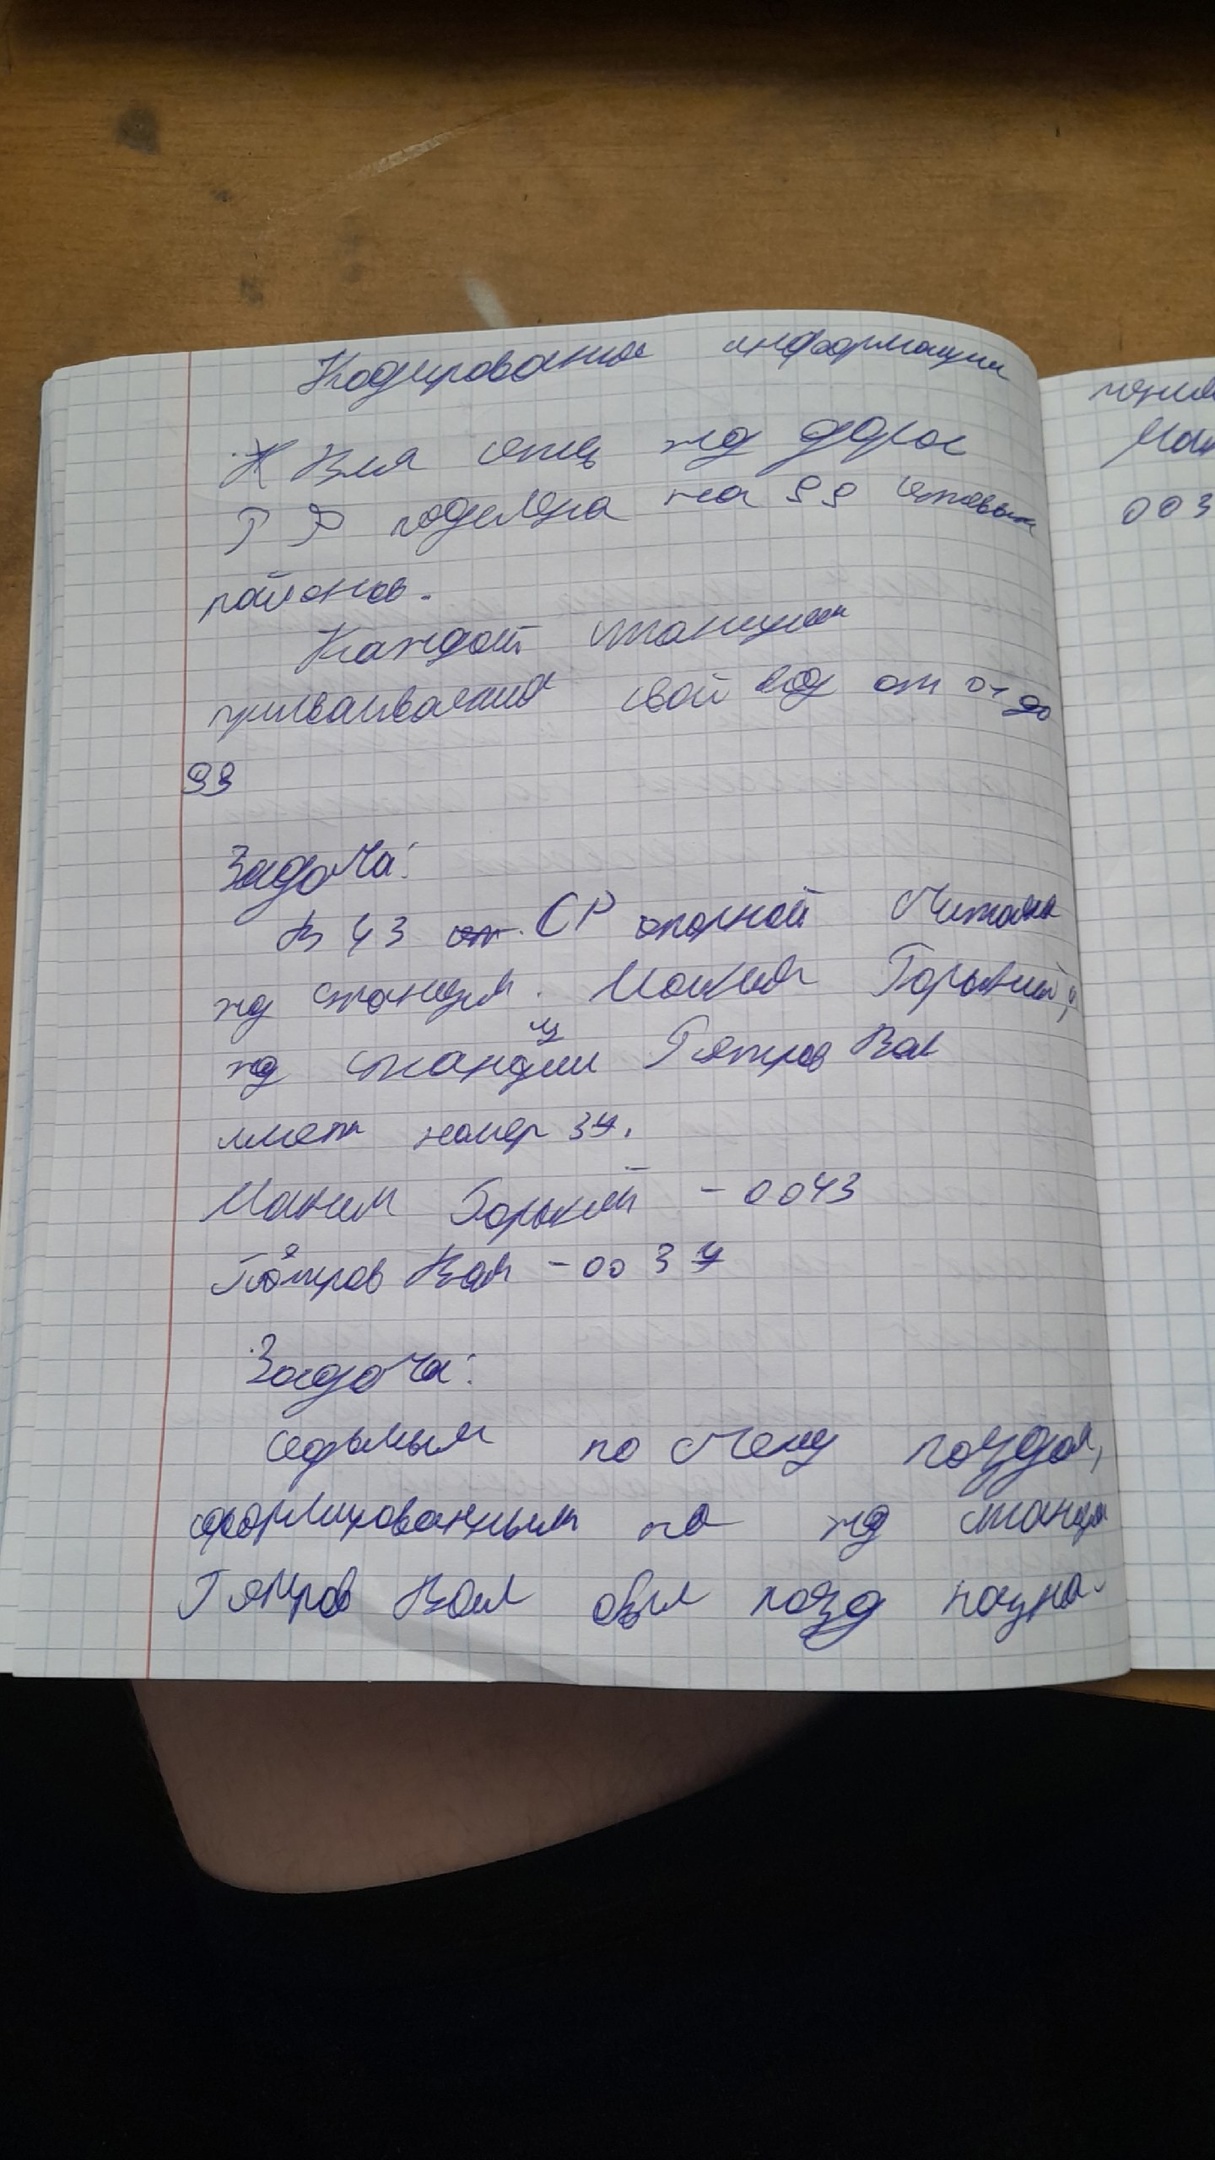 Кодирование информации
Вся сеть жд дорог
РФ поделена на 99 сетевых
районов.
Каждой станции
присваивается свой код от 01 до
99
Задача:
В 43 СР опорной считают
жд станция. Максим Горький,
жд станции Пятров Вал
имеет номер 37.
Максим Горький - 0043
Пятров Вал - 0037
Задача:
седьмым по счету поездом,
сформированным на жд станции
Пятров Вал был поезд назна-
Мак
003